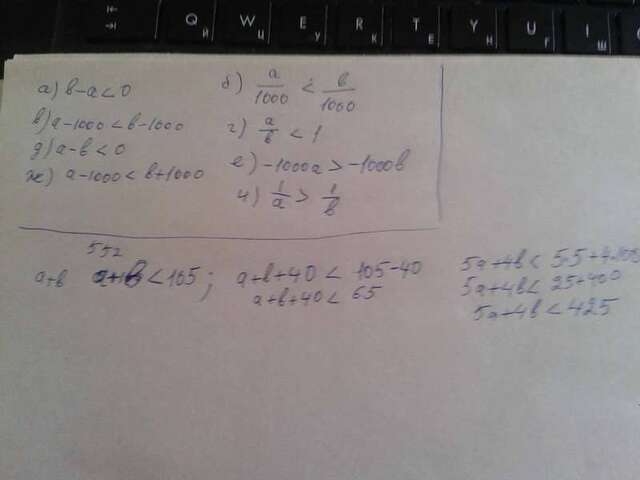 Q Й
W Ц
E У
R К
T Е
Y Н
U Г
I Ш
а) в-а<0
б) а/1000 < в/1000
в) а-1000<в-1000
г) а/в < 1
д) а-в<0
е) -1000а > -1000в
ж) а-1000<в+1000
и) 1/а > 1/в
552
а+в <105; а+в+40 < 105-40
а+в+40 < 65
5а+4в < 5·5+4·100
5а+4в < 25+400
5а+4в < 425